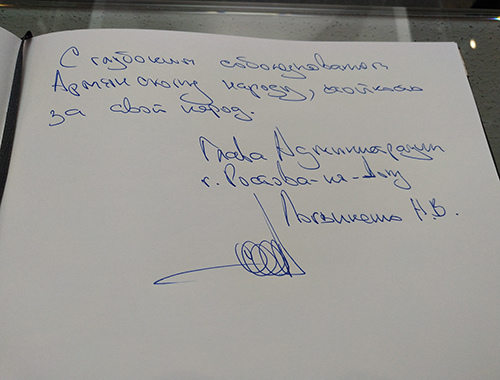 С глубоким соболезнованием
Армянскому народу,
за свой народ.
Глава Администрации
г. Ростова-на-Дону
Логвиненко Н.В.